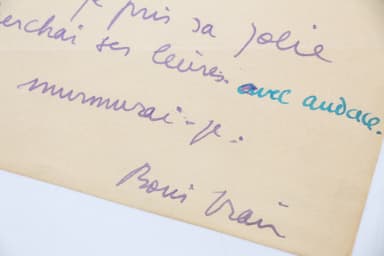 je pris sa jolie
erchai ses lèvres avec audace.
murmurai-je.
Boris Vian